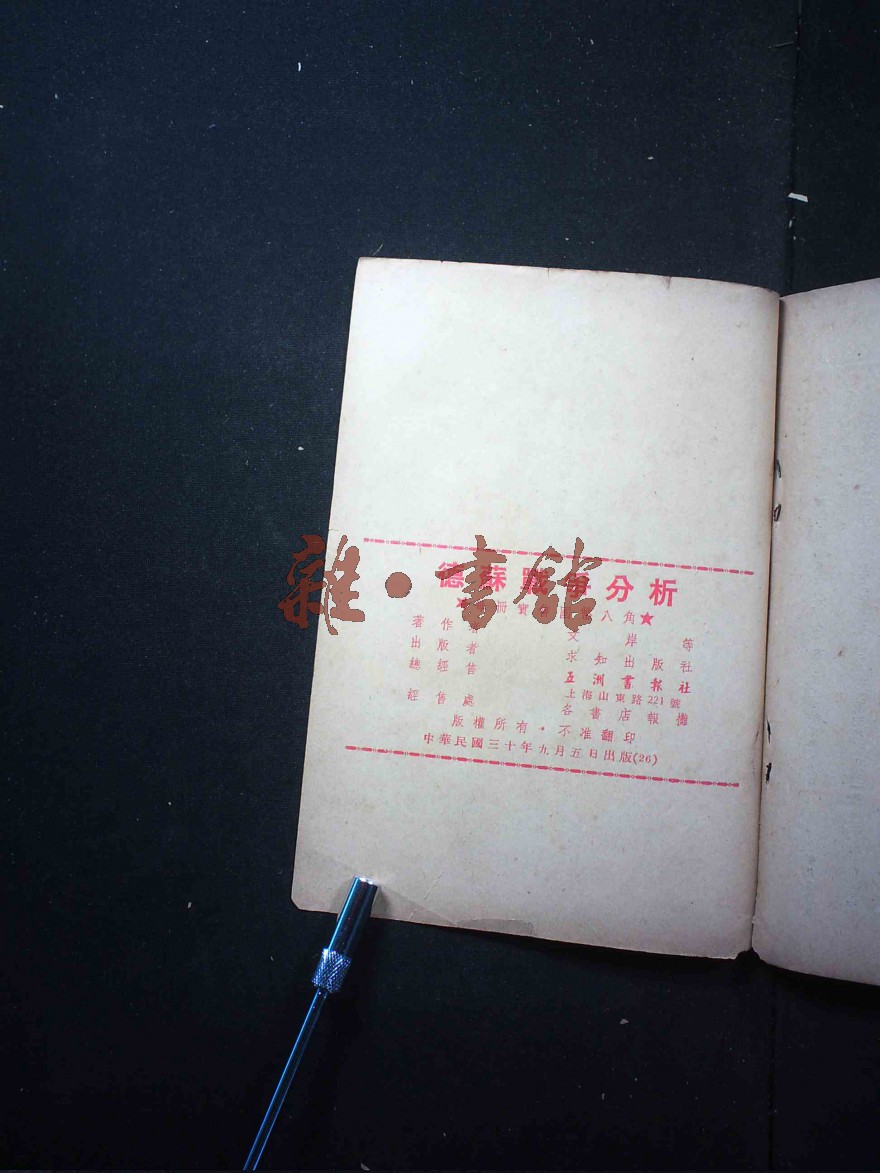 德蘇戰爭分析
★ 實國八角★
著作者 文岸等
出版者 求知出版社
總經售 五洲書報社
上海山東路221號
經售處 各書店報攤
版權所有・不准翻印
中華民國三十年九月五日出版(26)
雜・書館